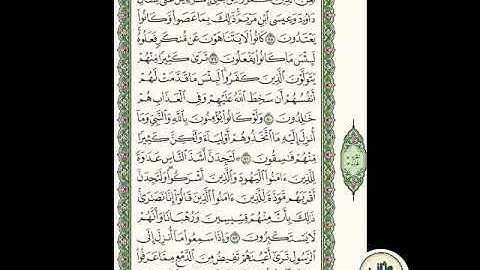 دَاوُۥدَ وَعِيسَى ٱبْنِ مَرْيَمَ ذَٰلِكَ بِمَا عَصَوا۟ وَّكَانُوا۟
يَعْتَدُونَ ۝٧٨ كَانُوا۟ لَا يَتَنَاهَوْنَ عَن مُّنكَرٍ فَعَلُوهُ
لَبِئْسَ مَا كَانُوا۟ يَفْعَلُونَ ۝٧٩ تَرَىٰ كَثِيرًا مِّنْهُمْ
يَتَوَلَّوْنَ ٱلَّذِينَ كَفَرُوا۟ لَبِئْسَ مَا قَدَّمَتْ لَهُمْ
أَنفُسُهُمْ أَن سَخِطَ ٱللَّهُ عَلَيْهِمْ وَفِى ٱلْعَذَابِ هُمْ
خَٰلِدُونَ ۝٨٠ وَلَوْ كَانُوا۟ يُؤْمِنُونَ بِٱللَّهِ وَٱلنَّبِىِّ وَمَآ
أُنزِلَ إِلَيْهِ مَا ٱتَّخَذُوهُمْ أَوْلِيَآءَ وَلَٰكِنَّ كَثِيرًا
مِّنْهُمْ فَٰسِقُونَ ۝٨١ لَتَجِدَنَّ أَشَدَّ ٱلنَّاسِ عَدَٰوَةً
لِّلَّذِينَ ءَامَنُوا۟ ٱلْيَهُودَ وَٱلَّذِينَ أَشْرَكُوا۟ وَلَتَجِدَنَّ
أَقْرَبَهُم مَّوَدَّةً لِّلَّذِينَ ءَامَنُوا۟ ٱلَّذِينَ قَالُوٓا۟ إِنَّا نَصَٰرَىٰ
ذَٰلِكَ بِأَنَّ مِنْهُمْ قِسِّيسِينَ وَرُهْبَانًا وَأَنَّهُمْ
لَا يَسْتَكْبِرُونَ ۝٨٢ وَإِذَا سَمِعُوا۟ مَآ أُنزِلَ إِلَى
ٱلرَّسُولِ تَرَىٰٓ أَعْيُنَهُمْ تَفِيضُ مِنَ ٱلدَّمْعِ مِمَّا عَرَفُوا۟